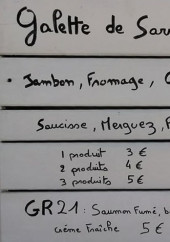 Galette de Sar
• Jambon, Fromage,
Saucisse, Merguez,
1 produit 3 €
2 produits 4 €
3 produits 5 €
GR21: Saumon Fumé,
Crème Fraîche 5 €